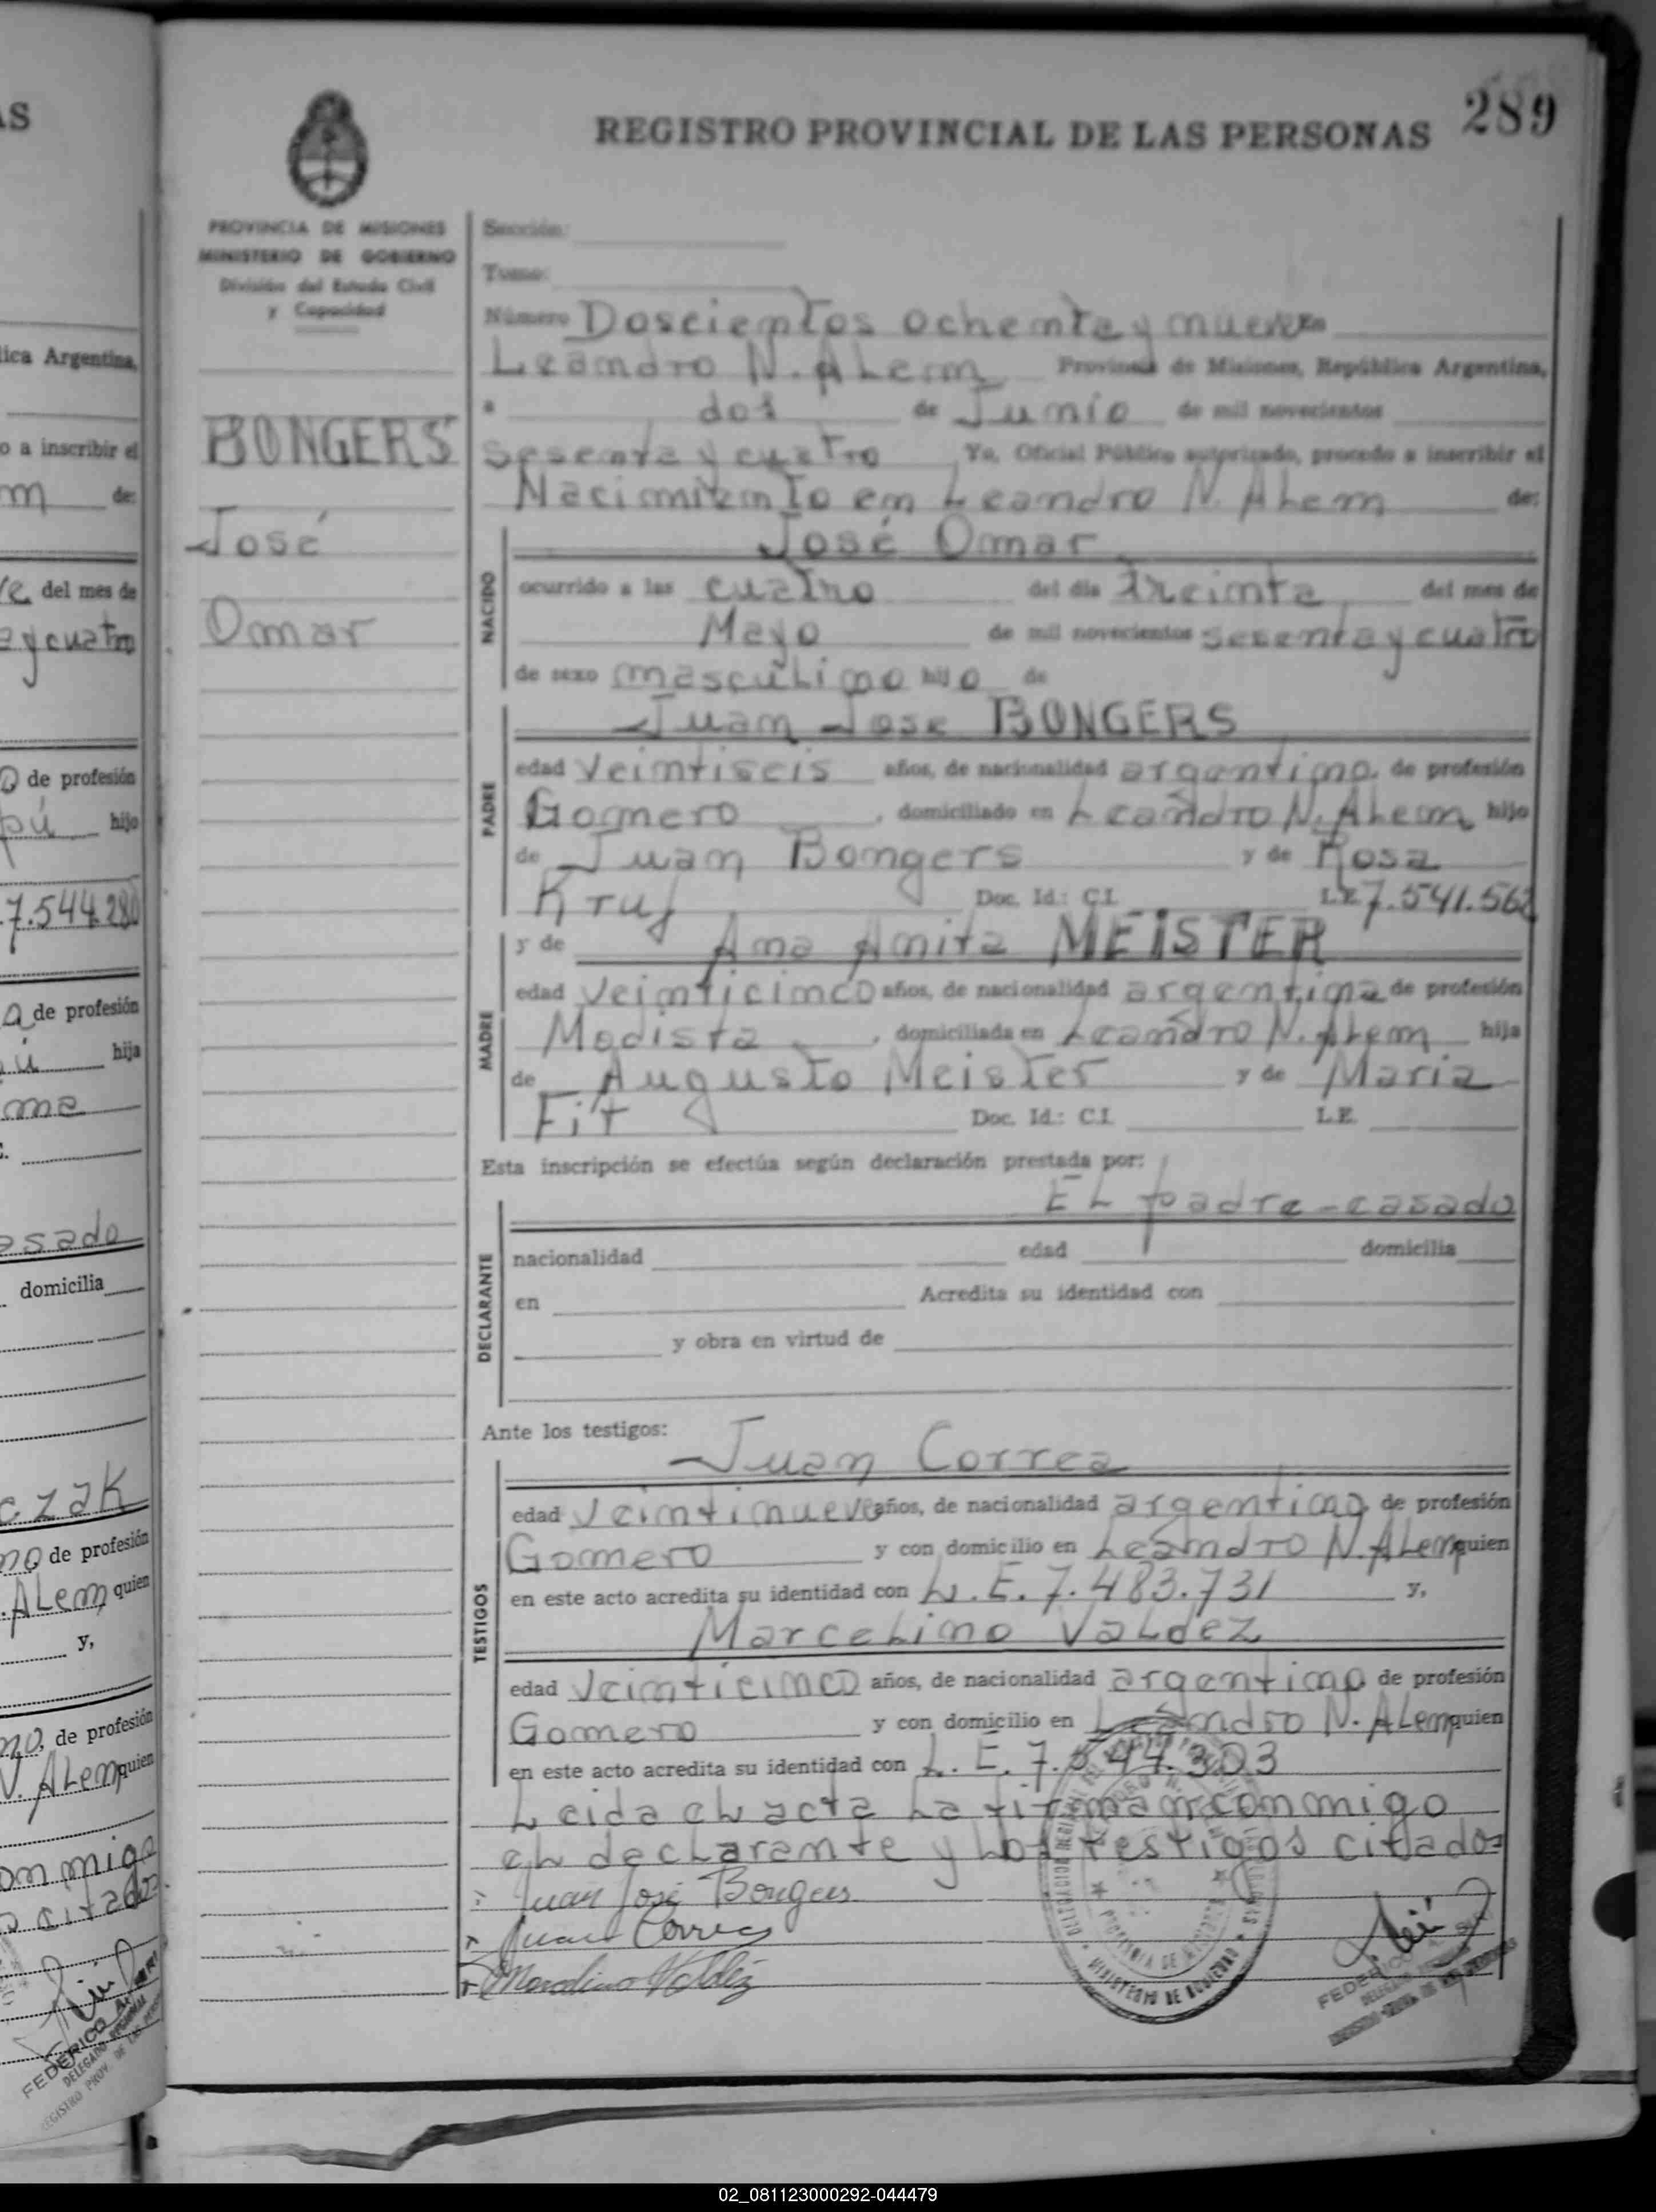 REGISTRO PROVINCIAL DE LAS PERSONAS 289
PROVINCIA DE MISIONES
MINISTERIO DE GOBIERNO
División del Estado Civil
y Capacidad
BONGERS
José
Omar
Sección:
Tomo:
Número Doscientos ochenta y nueve En
Leandro N. ALem Provincia de Misiones, República Argentina,
a dos de Junio de mil novecientos
sesenta y cuatro Yo, Oficial Público autorizado, procedo a inscribir el
Nacimiento en Leandro N. ALem de:
NACIDO
José Omar
ocurrido a las cuatro del día treinta del mes de
Mayo de mil novecientos sesenta y cuatro
de sexo mascuLino hijo de
PADRE
Juan Jose BONGERS
edad veintiseis años, de nacionalidad argentino, de profesión
Gomero, domiciliado en Leandro N. ALem hijo
de Juan Bongers y de Rosa
Doc. Id.: C.I. L.E. 7.541.562
MADRE
y de Ana Anita MEISTER
edad veinticinco años, de nacionalidad argentina de profesión
Modista, domiciliada en Leandro N. ALem hija
de Augusto Meister y de Maria
Fit Doc. Id.: C.I. L.E.
Esta inscripción se efectúa según declaración prestada por:
DECLARANTE
EL padre - casado
nacionalidad edad domicilia
en Acredita su identidad con
y obra en virtud de
Ante los testigos:
TESTIGOS
Juan Correa
edad veintinueve años, de nacionalidad argentino, de profesión
Gomero y con domicilio en Leandro N. ALem quien
en este acto acredita su identidad con L.E. 7.483.731 y,
MarceLino VaLdez
edad veinticinco años, de nacionalidad argentino, de profesión
Gomero y con domicilio en Leandro N. ALem quien
en este acto acredita su identidad con L.E. 7.544.303
Leida eL acta La firman conmigo
eL decLarante y Los testigos citados
Juan José Bongers
Juan Correa
Marcelino Valdéz
MINISTERIO DE GOBIERNO
FEDERICO
lica Argentina,
o a inscribir el
m de:
ve del mes de
a y cuatro
o de profesión
pú hijo
7.544.280
a de profesión
ú hija
ma
asado
domicilia
czak
no, de profesión
. ALem quien
y,
no, de profesión
N. ALem quien
onmigo
citados
FEDERICO
DELEGADO REGIONAL
REGISTRO PROV. DE LAS PERSONAS
02_081123000292-044479